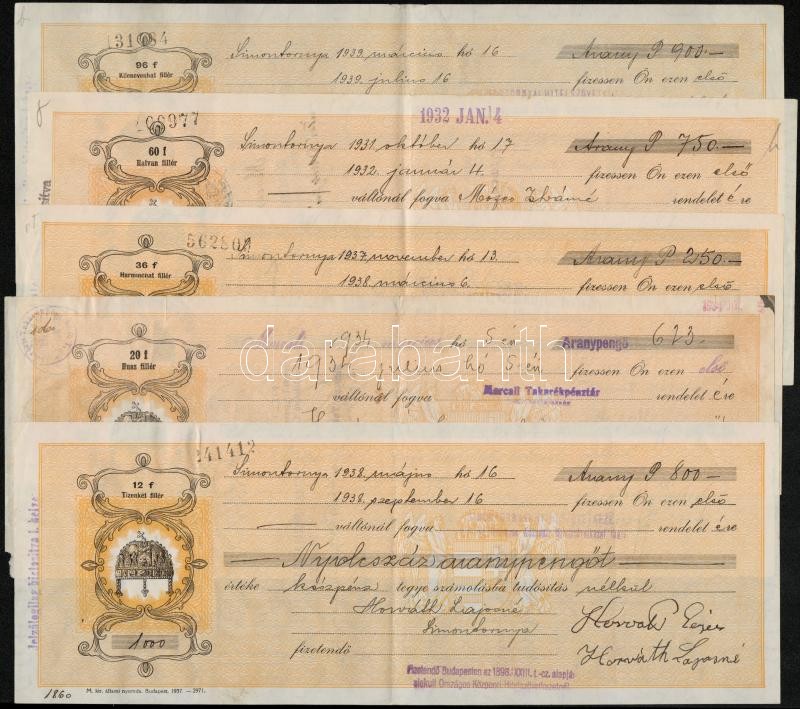 131084
96 f
Kilencvenhat fillér
Simontornya 1939. március hó 16
Arany P 900.-
1939. július 16
fizessen Ön ezen első
1932 JAN. 14
60 f
Hatvan fillér
Simontornya 1931. október hó 17
Arany P 750.-
1932. január 4.
fizessen Ön ezen első
váltónál fogva
rendelet ére
562808
36 f
Harminchat fillér
Simontornya 1937. november hó 13.
Arany P 250.-
1938. március 6.
fizessen Ön ezen első
20 f
Husz fillér
hó 5 én
Aranypengő 623.-
július hó 5 én
fizessen Ön ezen első
Marcali Takarékpénztár
váltónál fogva
rendelet ére
darabanth
241412
12 f
Tizenkét fillér
Simontornya 1938. május hó 16
Arany P 800.-
1938. szeptember 16
fizessen Ön ezen első
váltónál fogva
rendelet ére
Nyolcszáz aranypengőt
értéke készpénz tegye számolásba tudósítás nélkül
Horváth Lajosné
Simontornya
fizetendő
Horváth Lajosné
1000
Fizetendő Budapesten az 1898. XXIII. t.-cz. alapján
alakult Országos Központi Hitelszövetkezetnél
1860
M. kir. állami nyomda. Budapest, 1937. — 2971.